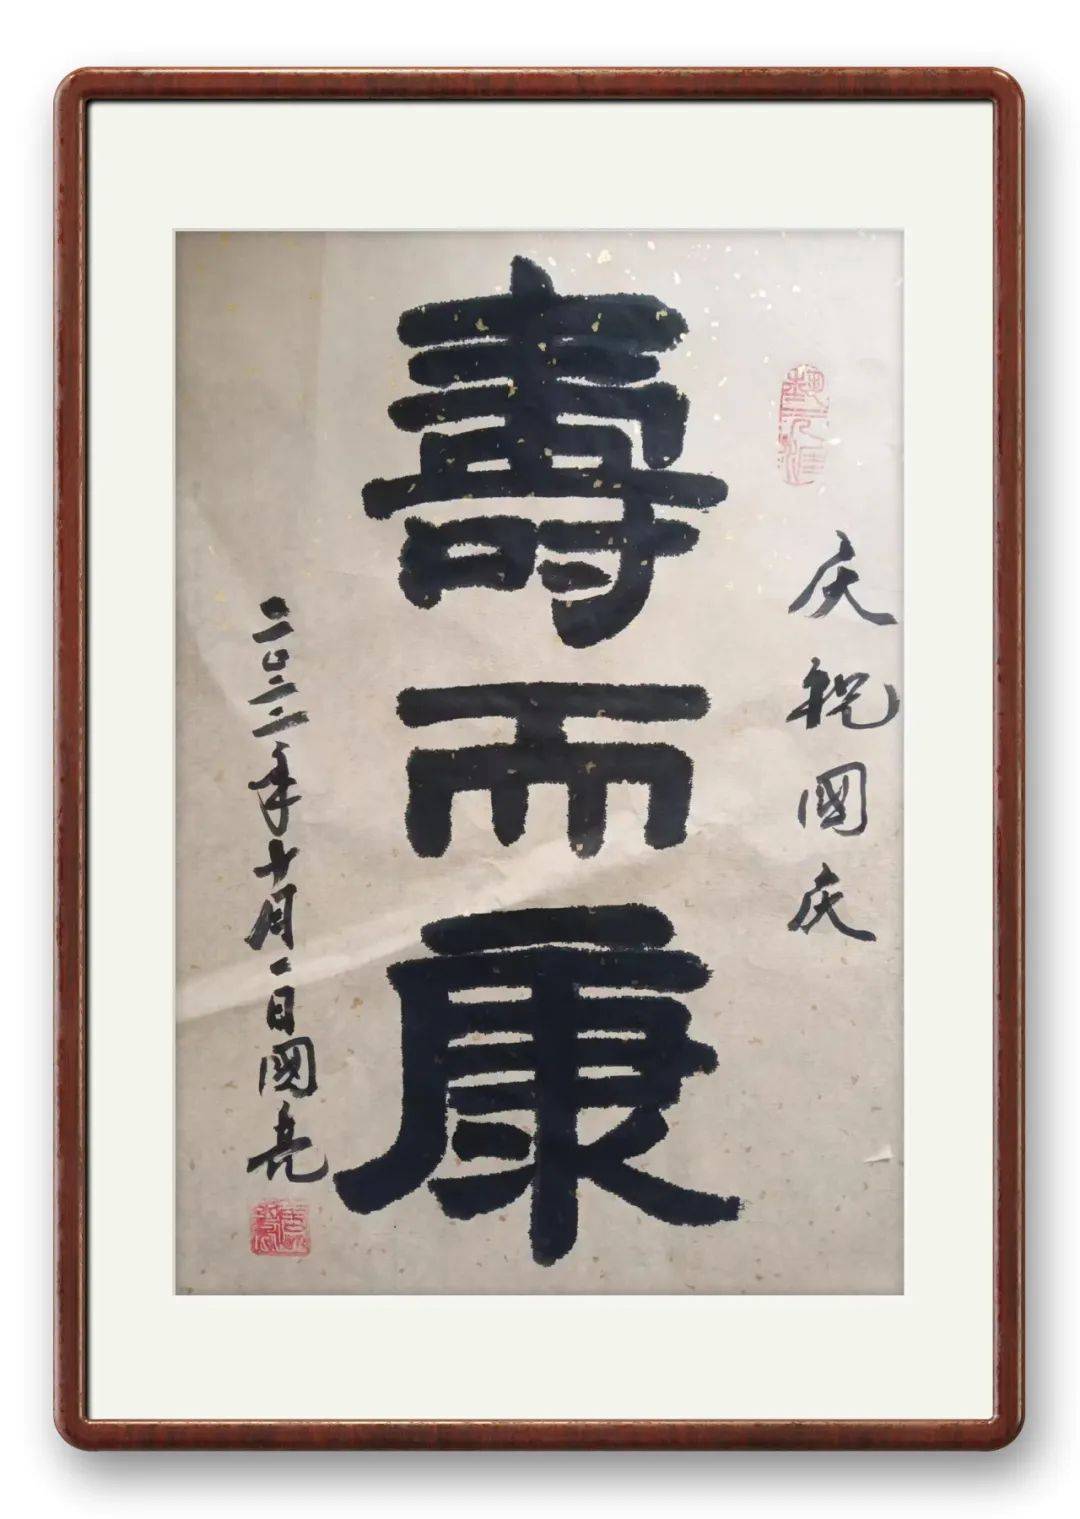 庆祝國庆
壽而康
二〇二二年十月一日國亮